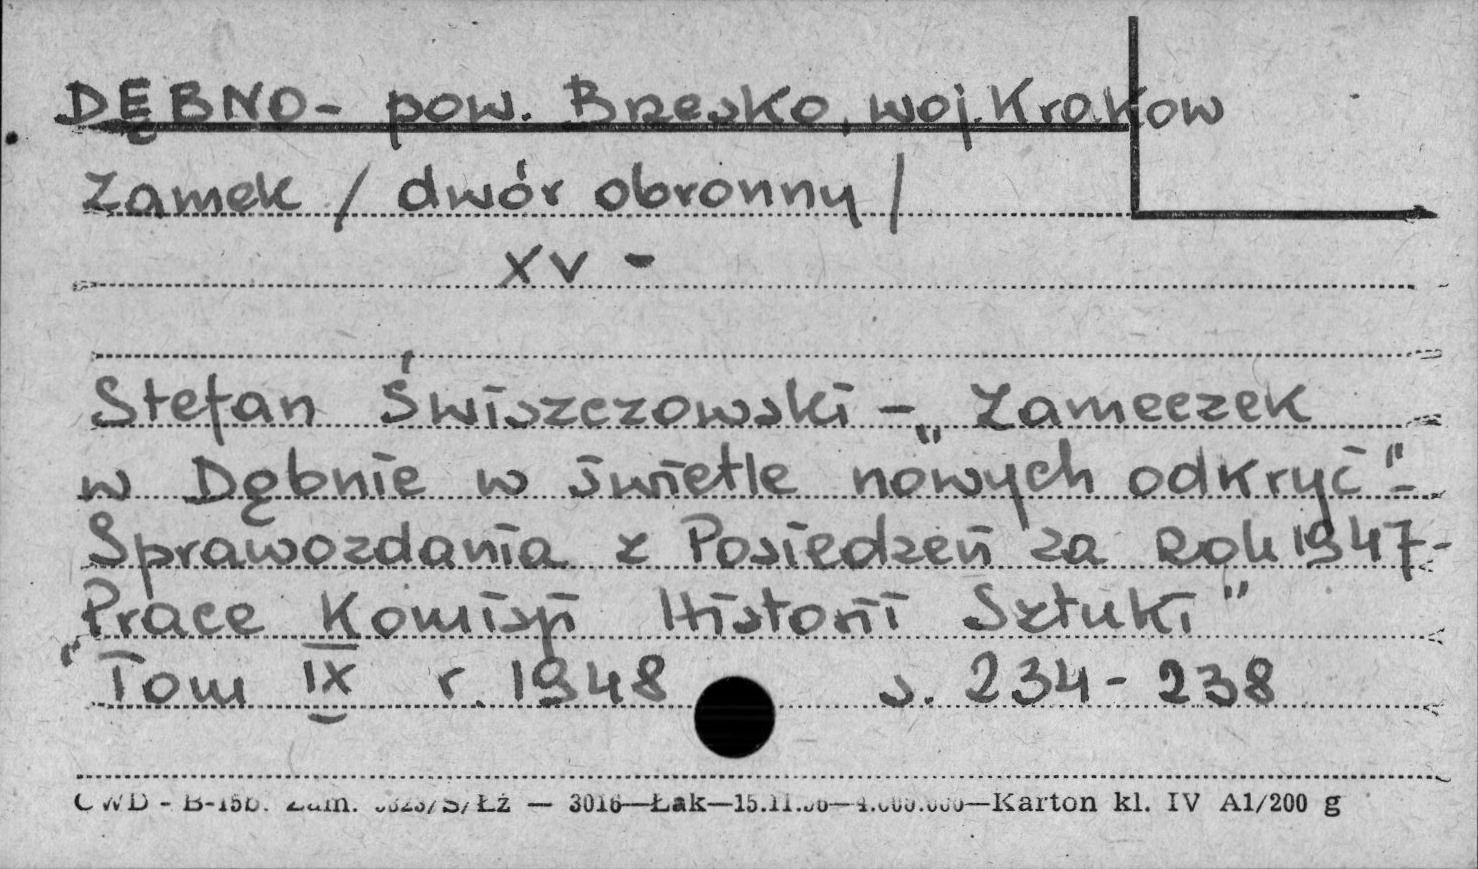 DĘBNO - pow. Brzesko, woj. Kraków
Zamek / dwór obronny /
XV -
Stefan Świszczowski - „Zameczek
w Dębnie w świetle nowych odkryć" -
Sprawozdania z Posiedzeń za Rok 1947 -
„Prace Komisji Historii Sztuki"
Tom IX r. 1948 s. 234 - 238
CWD - B-15b. Zam. /S/Łż — 3016—Łak—15.11.56—4.000.000—Karton kl. IV A1/200 g